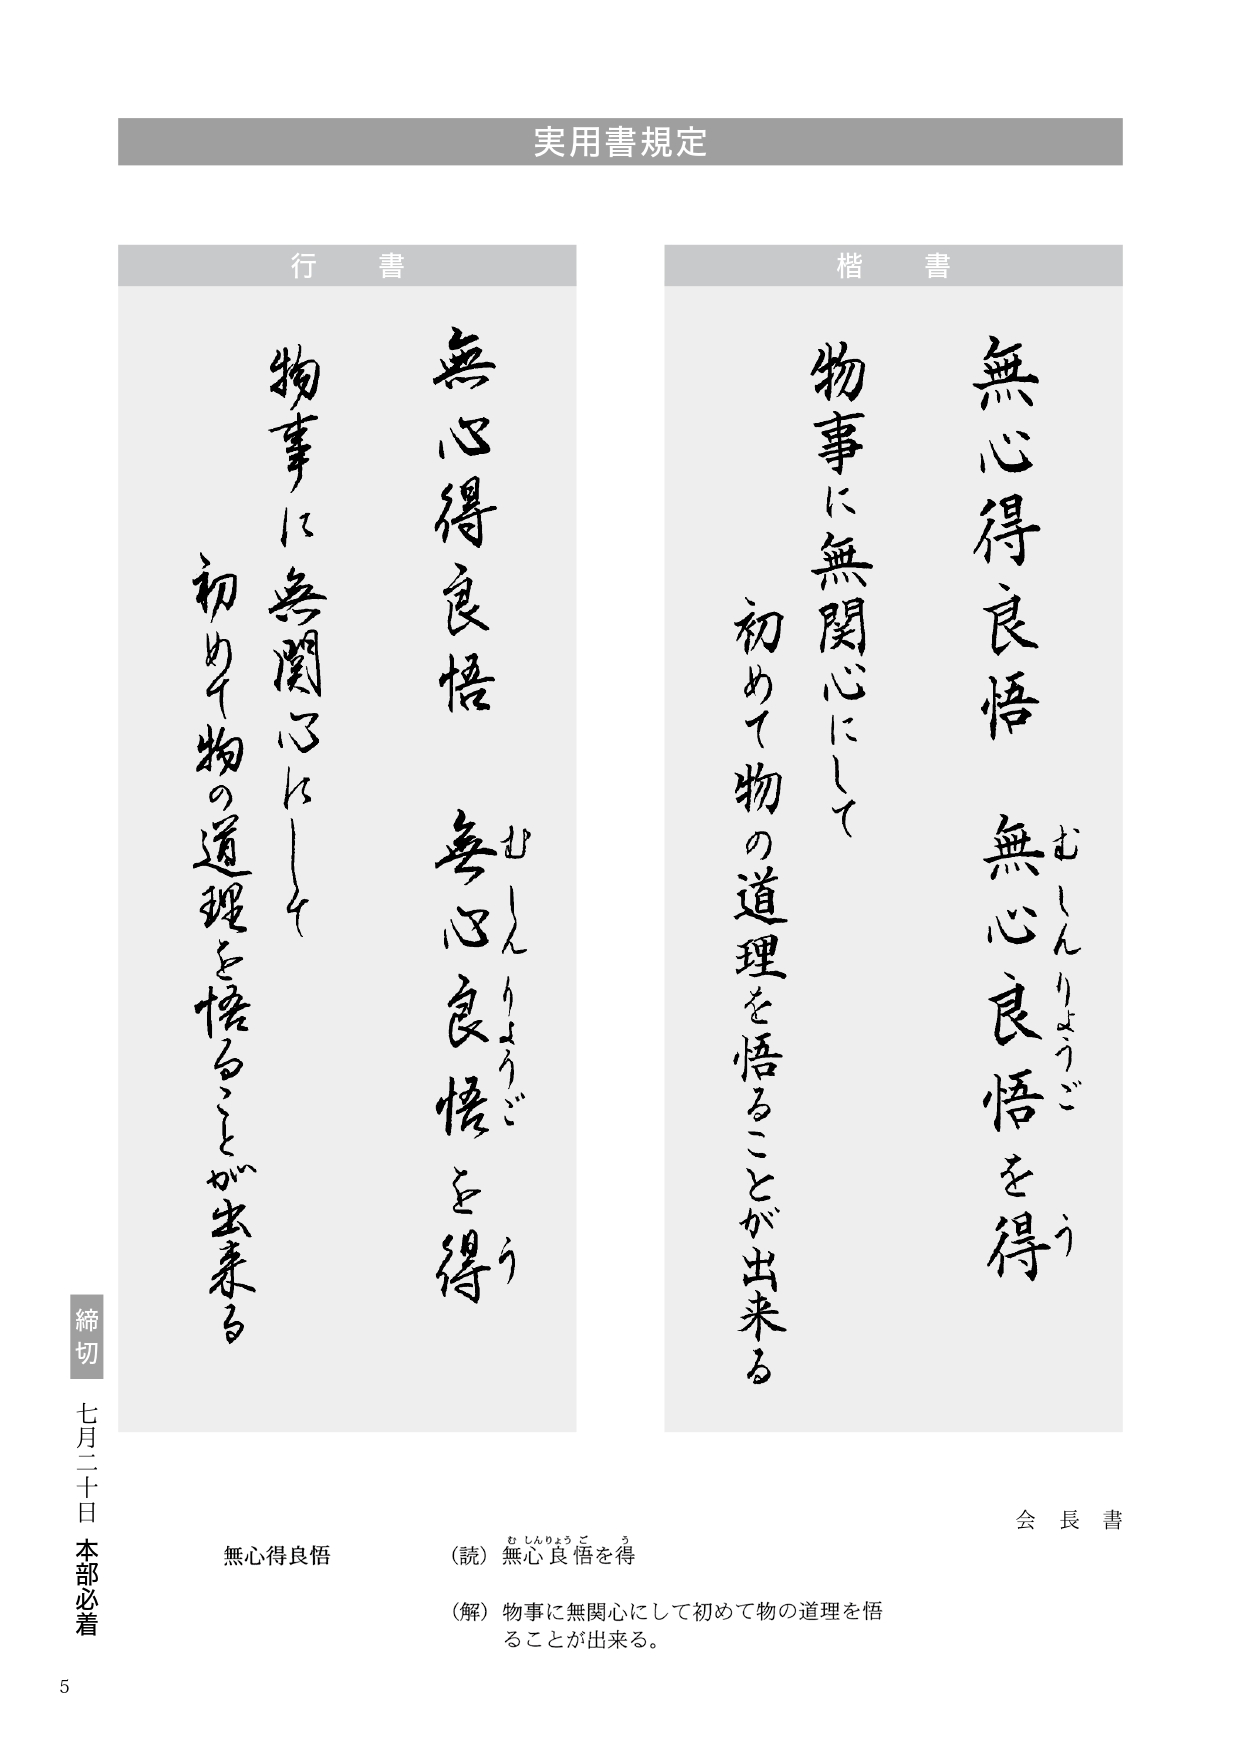 実用書規定
楷書
無心得良悟 無心良悟を得
むしんりょうご う
物事に無関心にして
初めて物の道理を悟ることが出来る
行書
無心得良悟 無心良悟を得
むしんりょうご う
物事に無関心にして
初めて物の道理を悟ることが出来る
会長書
無心得良悟
むしんりょうご う
（読）無心良悟を得
（解）物事に無関心にして初めて物の道理を悟
ることが出来る。
締切 七月二十日 本部必着
5